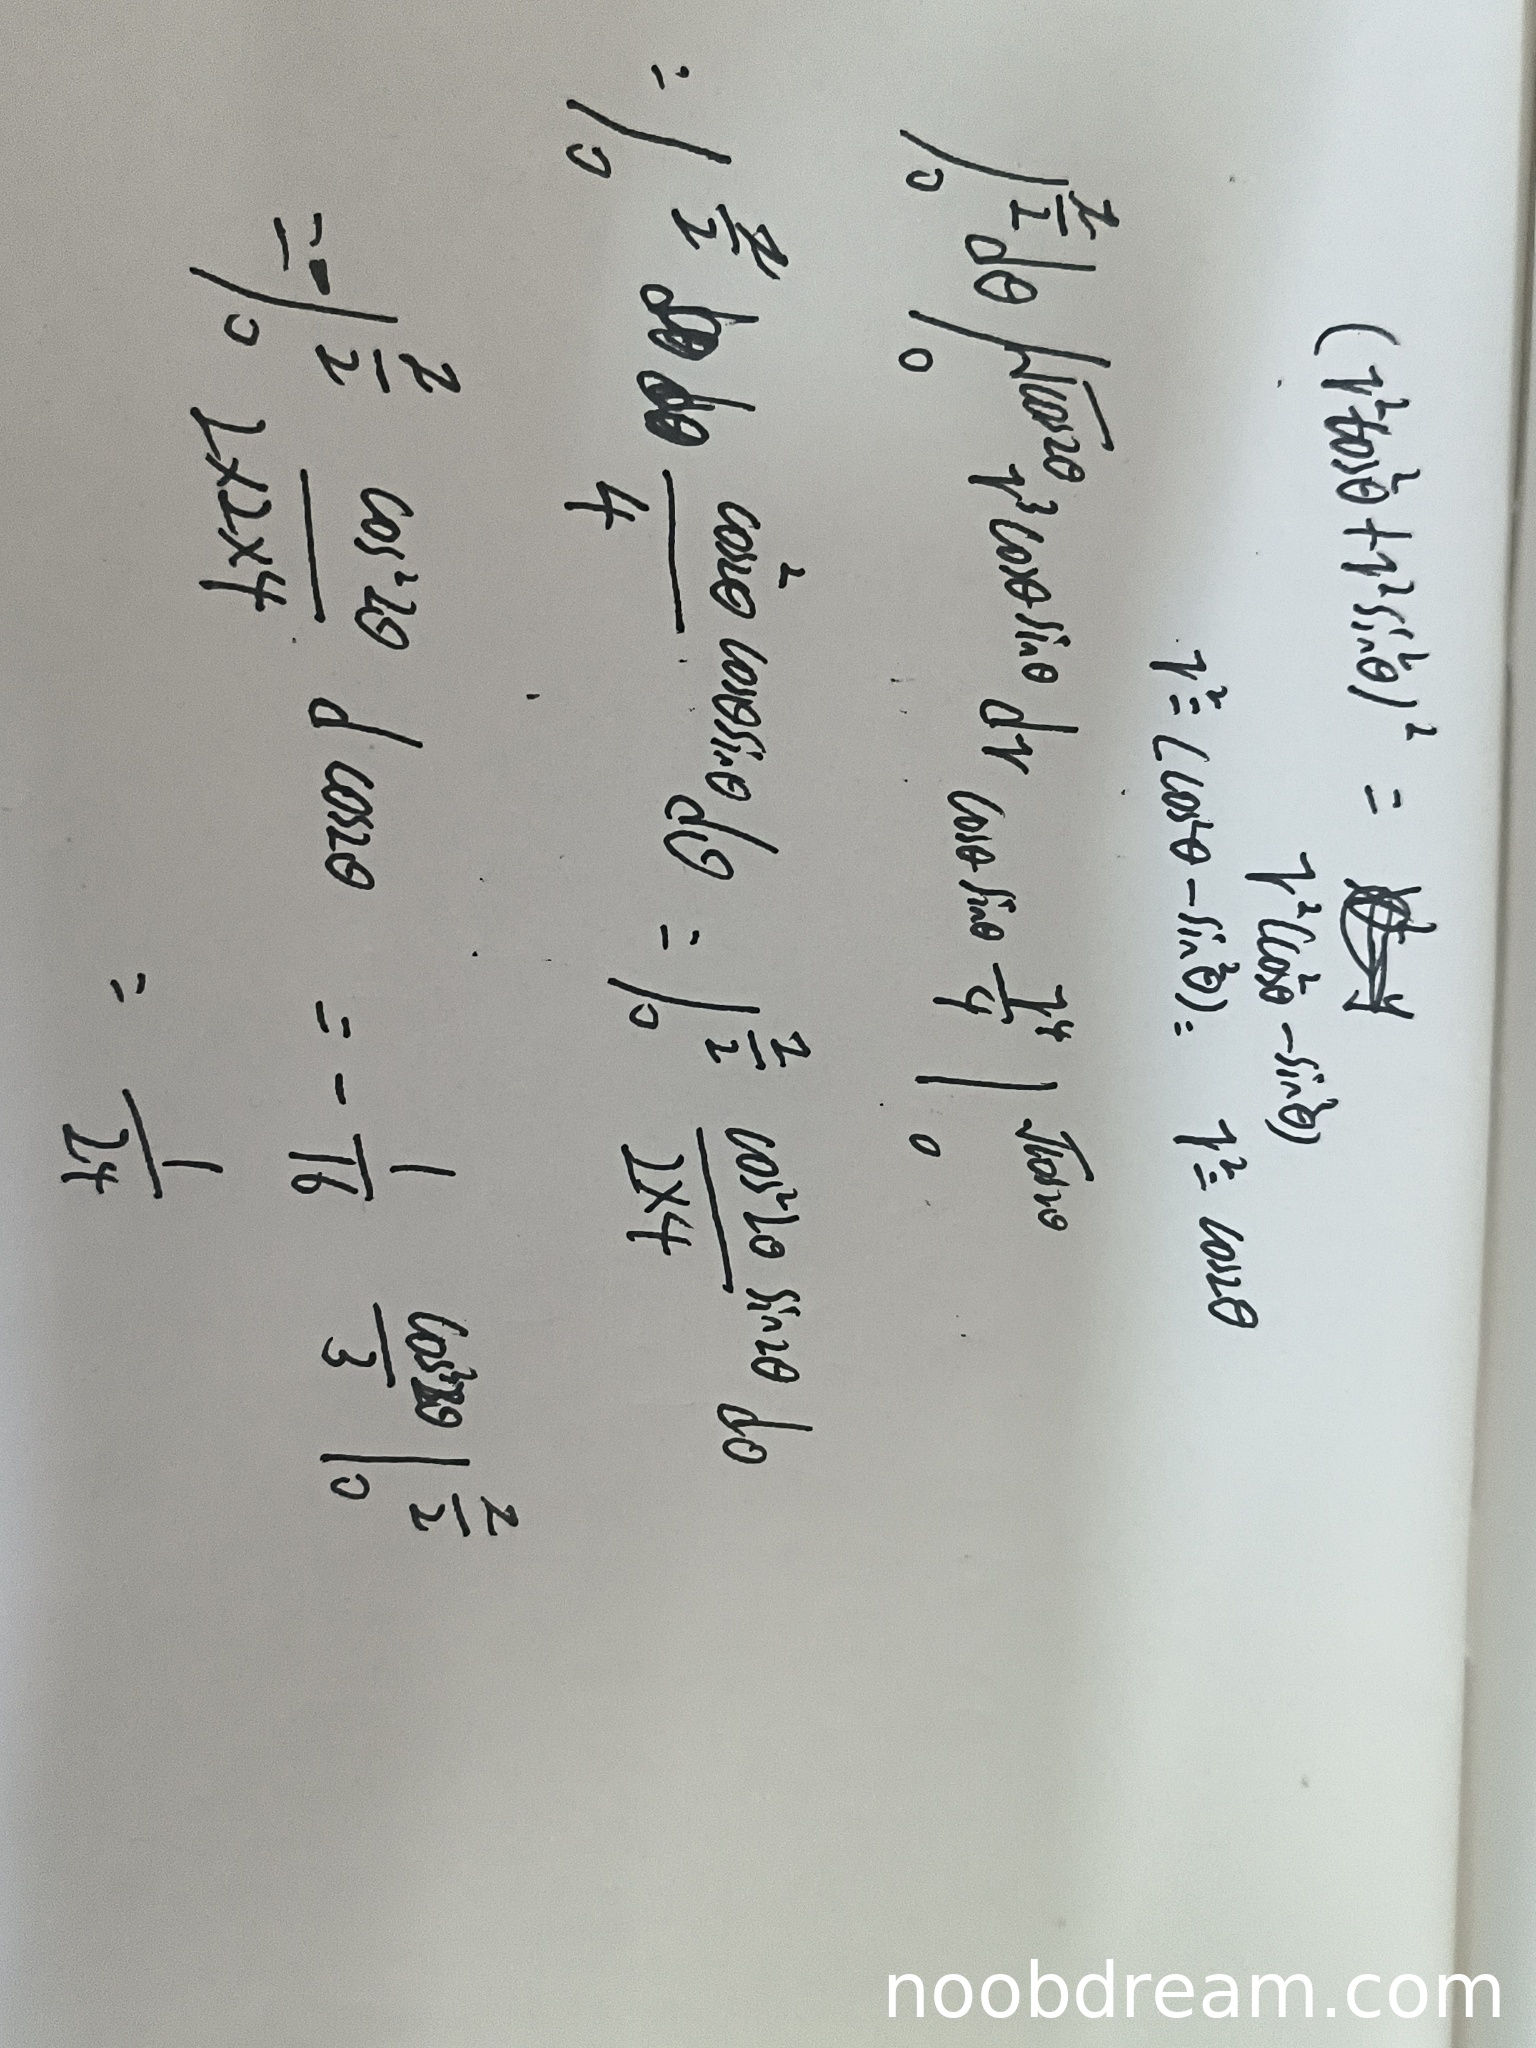 (r²cos²θ + r²sin²θ)² = r²(cos²θ - sin²θ)
r² = (cos²θ - sin²θ) = r² = cos2θ
∫₀^(π/2) dθ ∫₀^(√cos2θ) r³cosθ sinθ dr cosθ sinθ r⁴/4 |₀^(√cos2θ)
= ∫₀^(π/2) cos²2θ cosθ sinθ/4 dθ = ∫₀^(π/2) cos²2θ sin2θ/(2×4) dθ
= -∫₀^(π/2) cos²2θ/(2×2×4) d cos2θ = -1/16 cos³2θ/3 |₀^(π/2)
= 1/24
noobdream.com